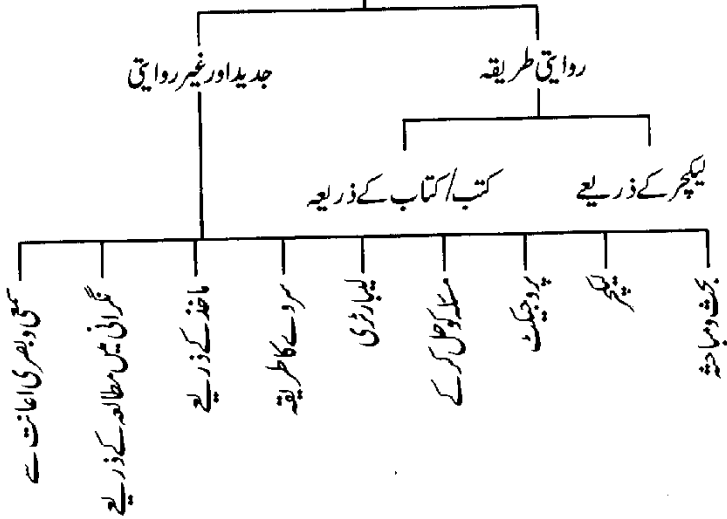 روایتی طریقہ
جدید اور غیر روایتی
لیکچر کے ذریعے
کتب/کتاب کے ذریعہ
بحث و مباحثہ
لیکچر
پروجیکٹ
مسئلہ کو حل کر کے
لیبارٹری
سروے کا طریقہ
ماخذ کے ذریعے
نگرانی میں مطالعہ کے ذریعے
سمعی و بصری اعانت سے